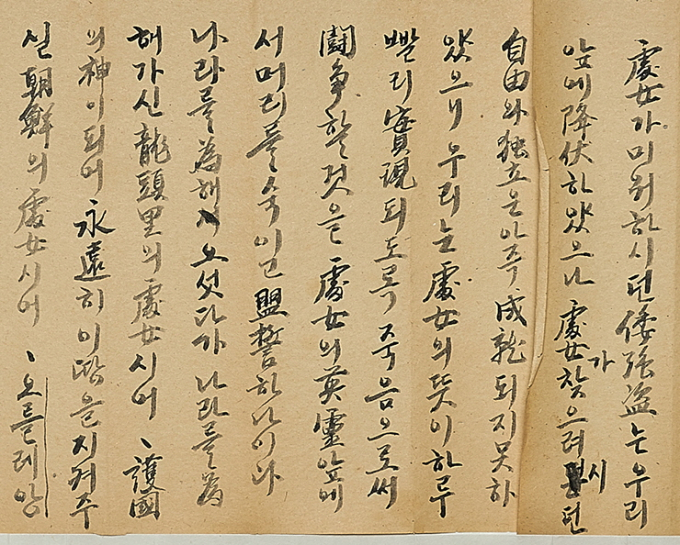 處女가 미워하시던 倭强盜는 우리
앞에 降伏하얐으나 處女가 찾으려 시던
自由와 独立은 아즉 成就되지못하
얐으니 우리는 處女의 뜻이 하루
빨리 實現되도록 죽음으로써
鬪争할것을 處女의 英靈앞에
서 머리를 숙이고 盟誓하나이다
나라를 爲해서 오셧다가 나라를 爲
해 가신 龍頭里의 處女시어、護國
의 神이 되어 永遠히 이땅을 지켜주
실 朝鮮의 處女시어、오를레앙